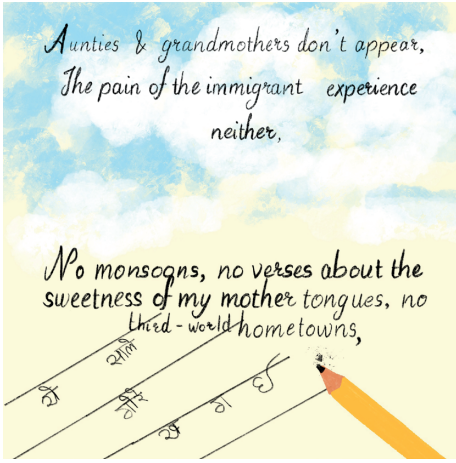 Aunties & grandmothers don't appear,
The pain of the immigrant experience
neither,
No monsoons, no verses about the
sweetness of my mother tongues, no
third-world hometowns,
ये साले
गंभीर
ख ग ई